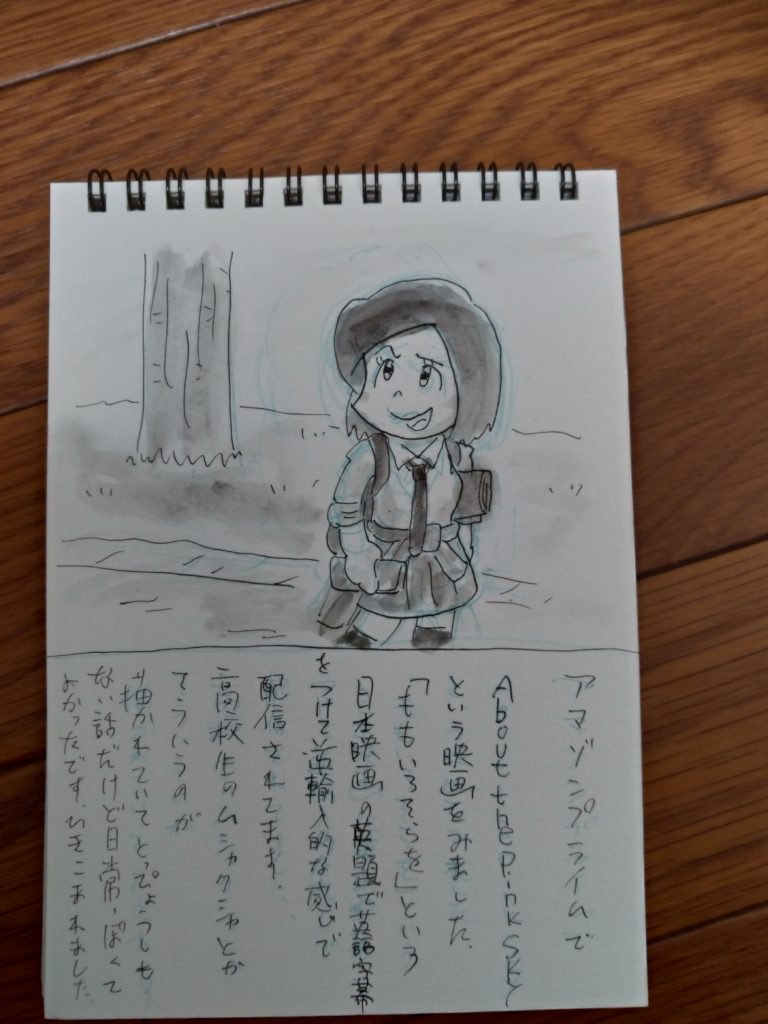 アマゾンプライムで
About the Pink Sky
という映画をみました.
「ももいろそらを」という
日本映画の英題で英語字幕
をつけて逆輸入的な感じで
配信されてます.
高校生のムシャクシャとか
そういうのが
描かれていてとっぴょうしも
ない話だけど日常っぽくて
よかったです.ひきこまれました.